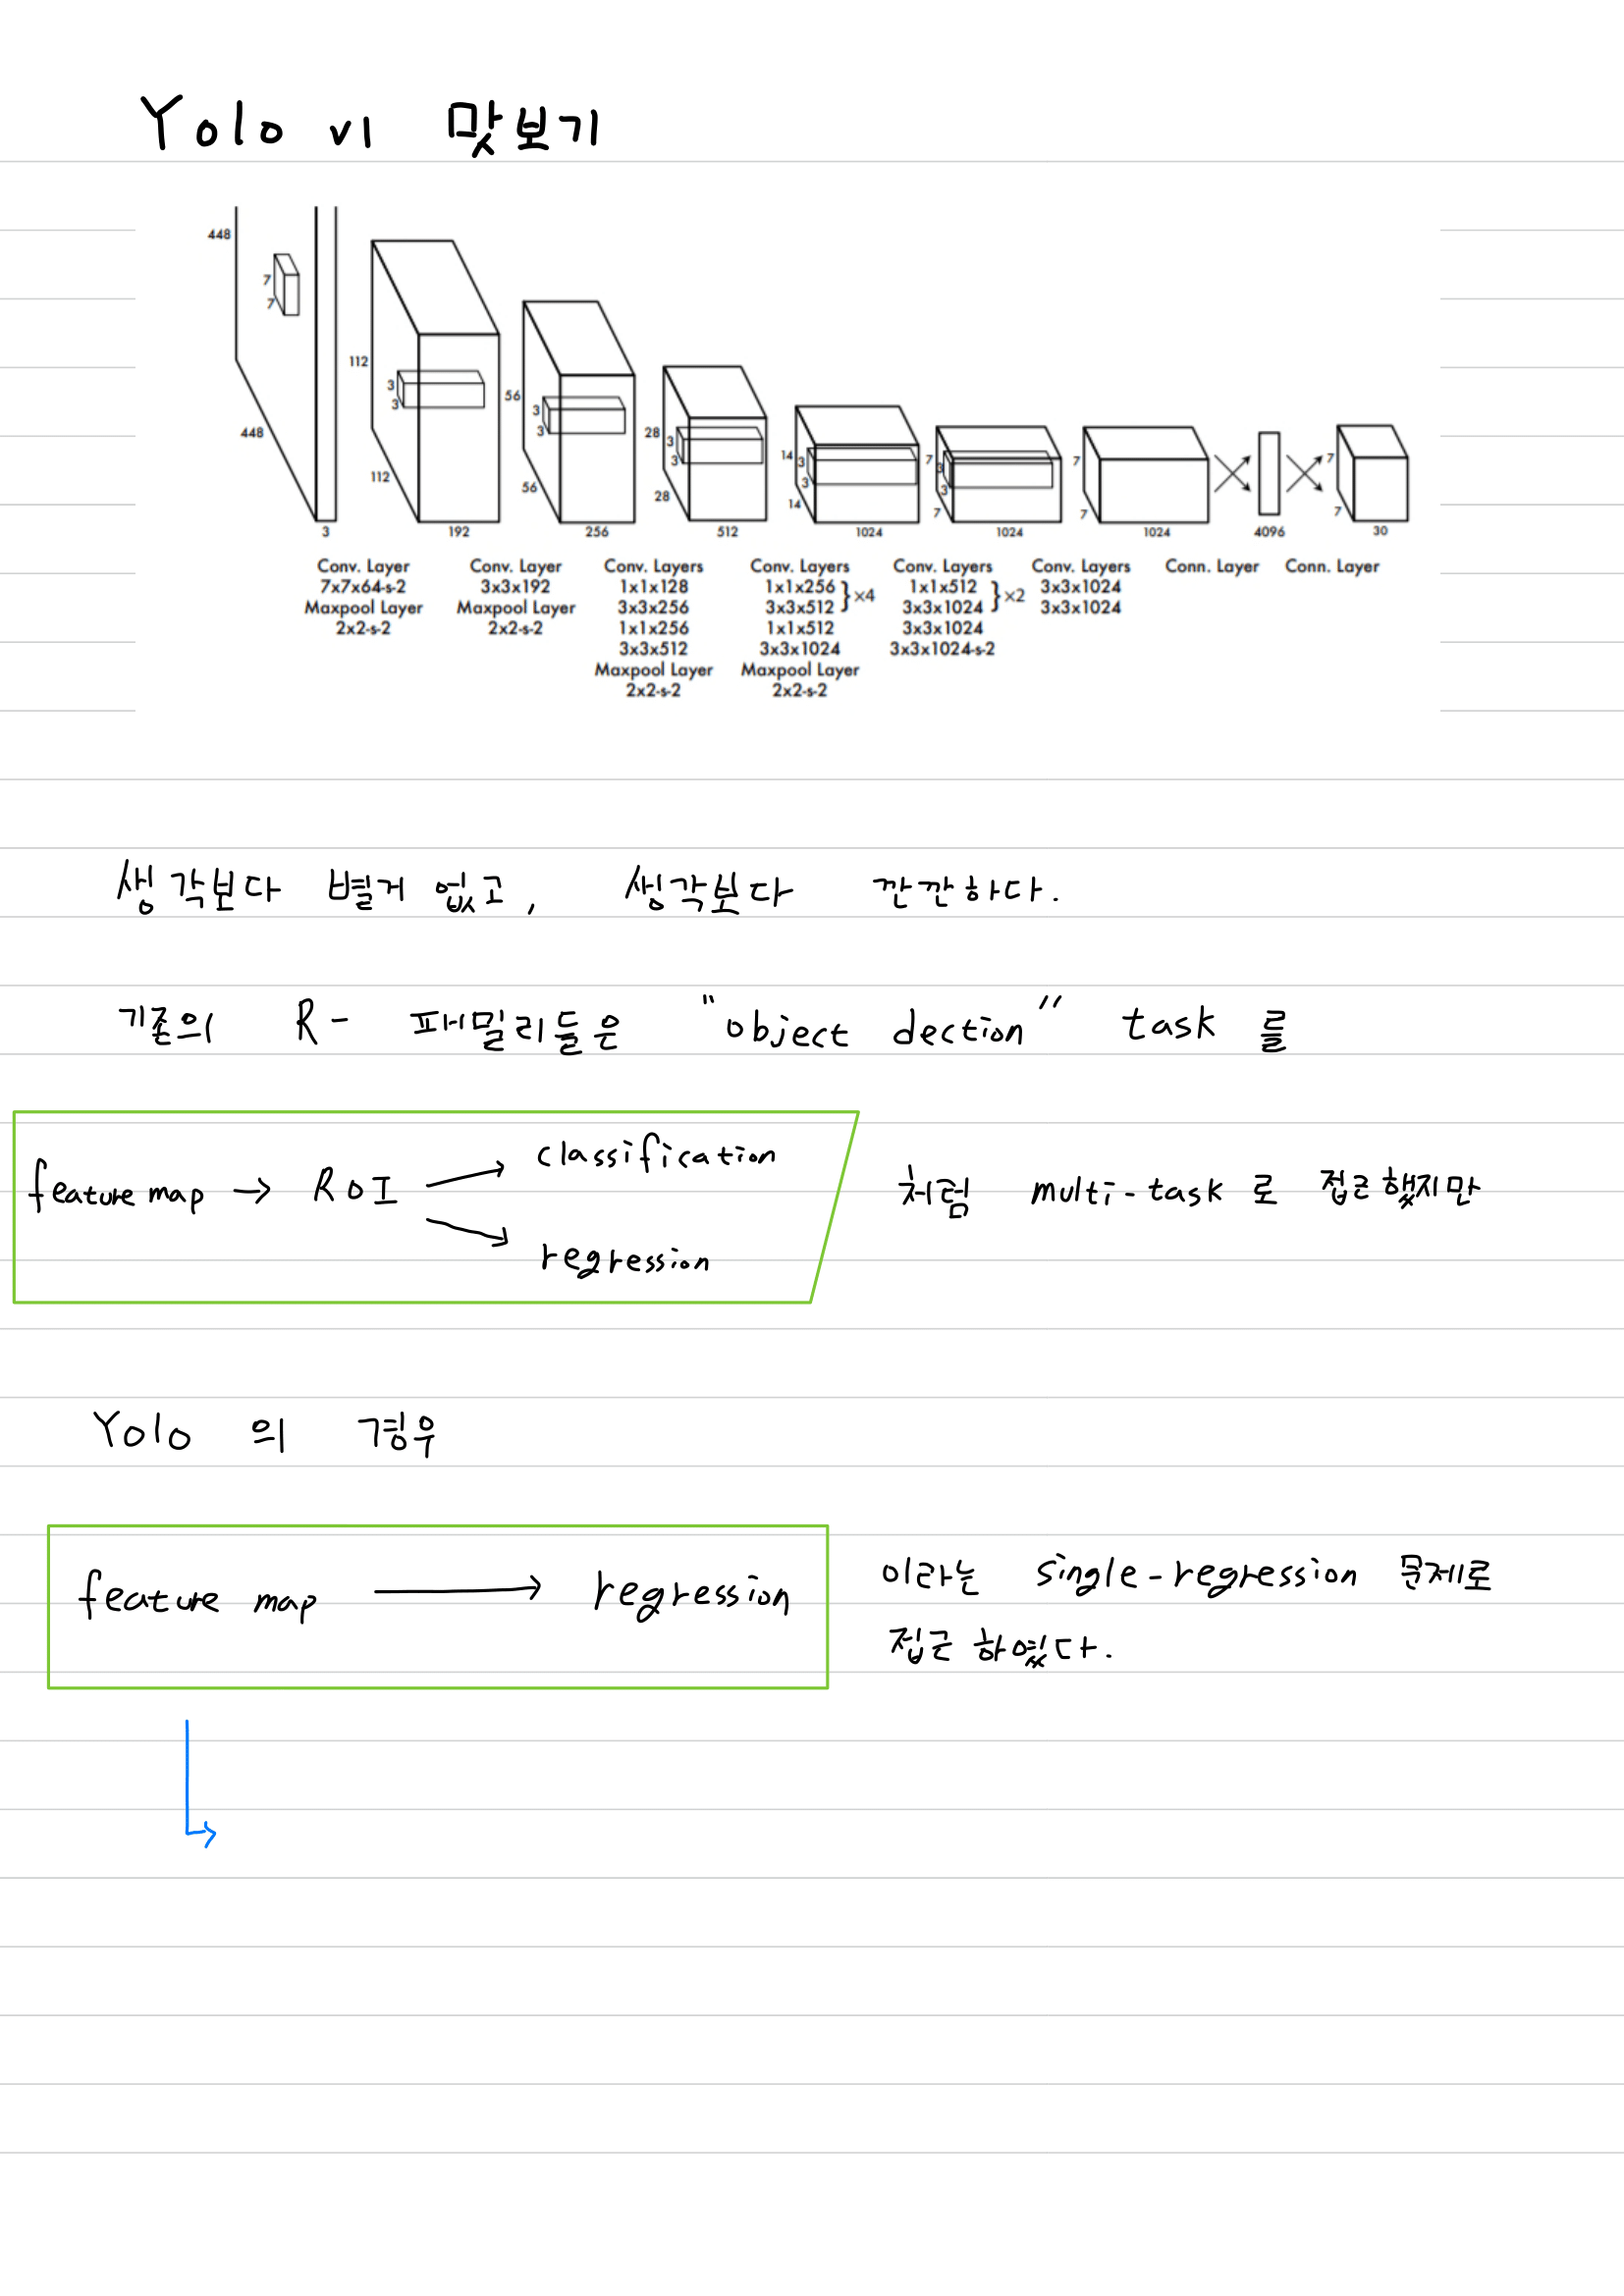 Yolo v1 맛보기
448
7
7
448
3
112
3
3
112
192
56
3
3
56
256
28
3
3
28
512
14
3
3
14
1024
7
3
3
7
1024
7
7
1024
4096
7
7
30
Conv. Layer
7x7x64-s-2
Maxpool Layer
2x2-s-2
Conv. Layer
3x3x192
Maxpool Layer
2x2-s-2
Conv. Layers
1x1x128
3x3x256
1x1x256
3x3x512
Maxpool Layer
2x2-s-2
Conv. Layers
1x1x256
3x3x512
} x4
1x1x512
3x3x1024
Maxpool Layer
2x2-s-2
Conv. Layers
1x1x512
3x3x1024
} x2
3x3x1024
3x3x1024-s-2
Conv. Layers
3x3x1024
3x3x1024
Conn. Layer
Conn. Layer
생각보다 별거 없고, 생각보다 깐깐하다.
기존의 R- 패밀리들은 "object dection" task 를
feature map → ROI → classification
→ regression
처럼 multi-task 로 접근했지만
Yolo 의 경우
feature map → regression
이라는 single-regression 문제로
접근 하였다.